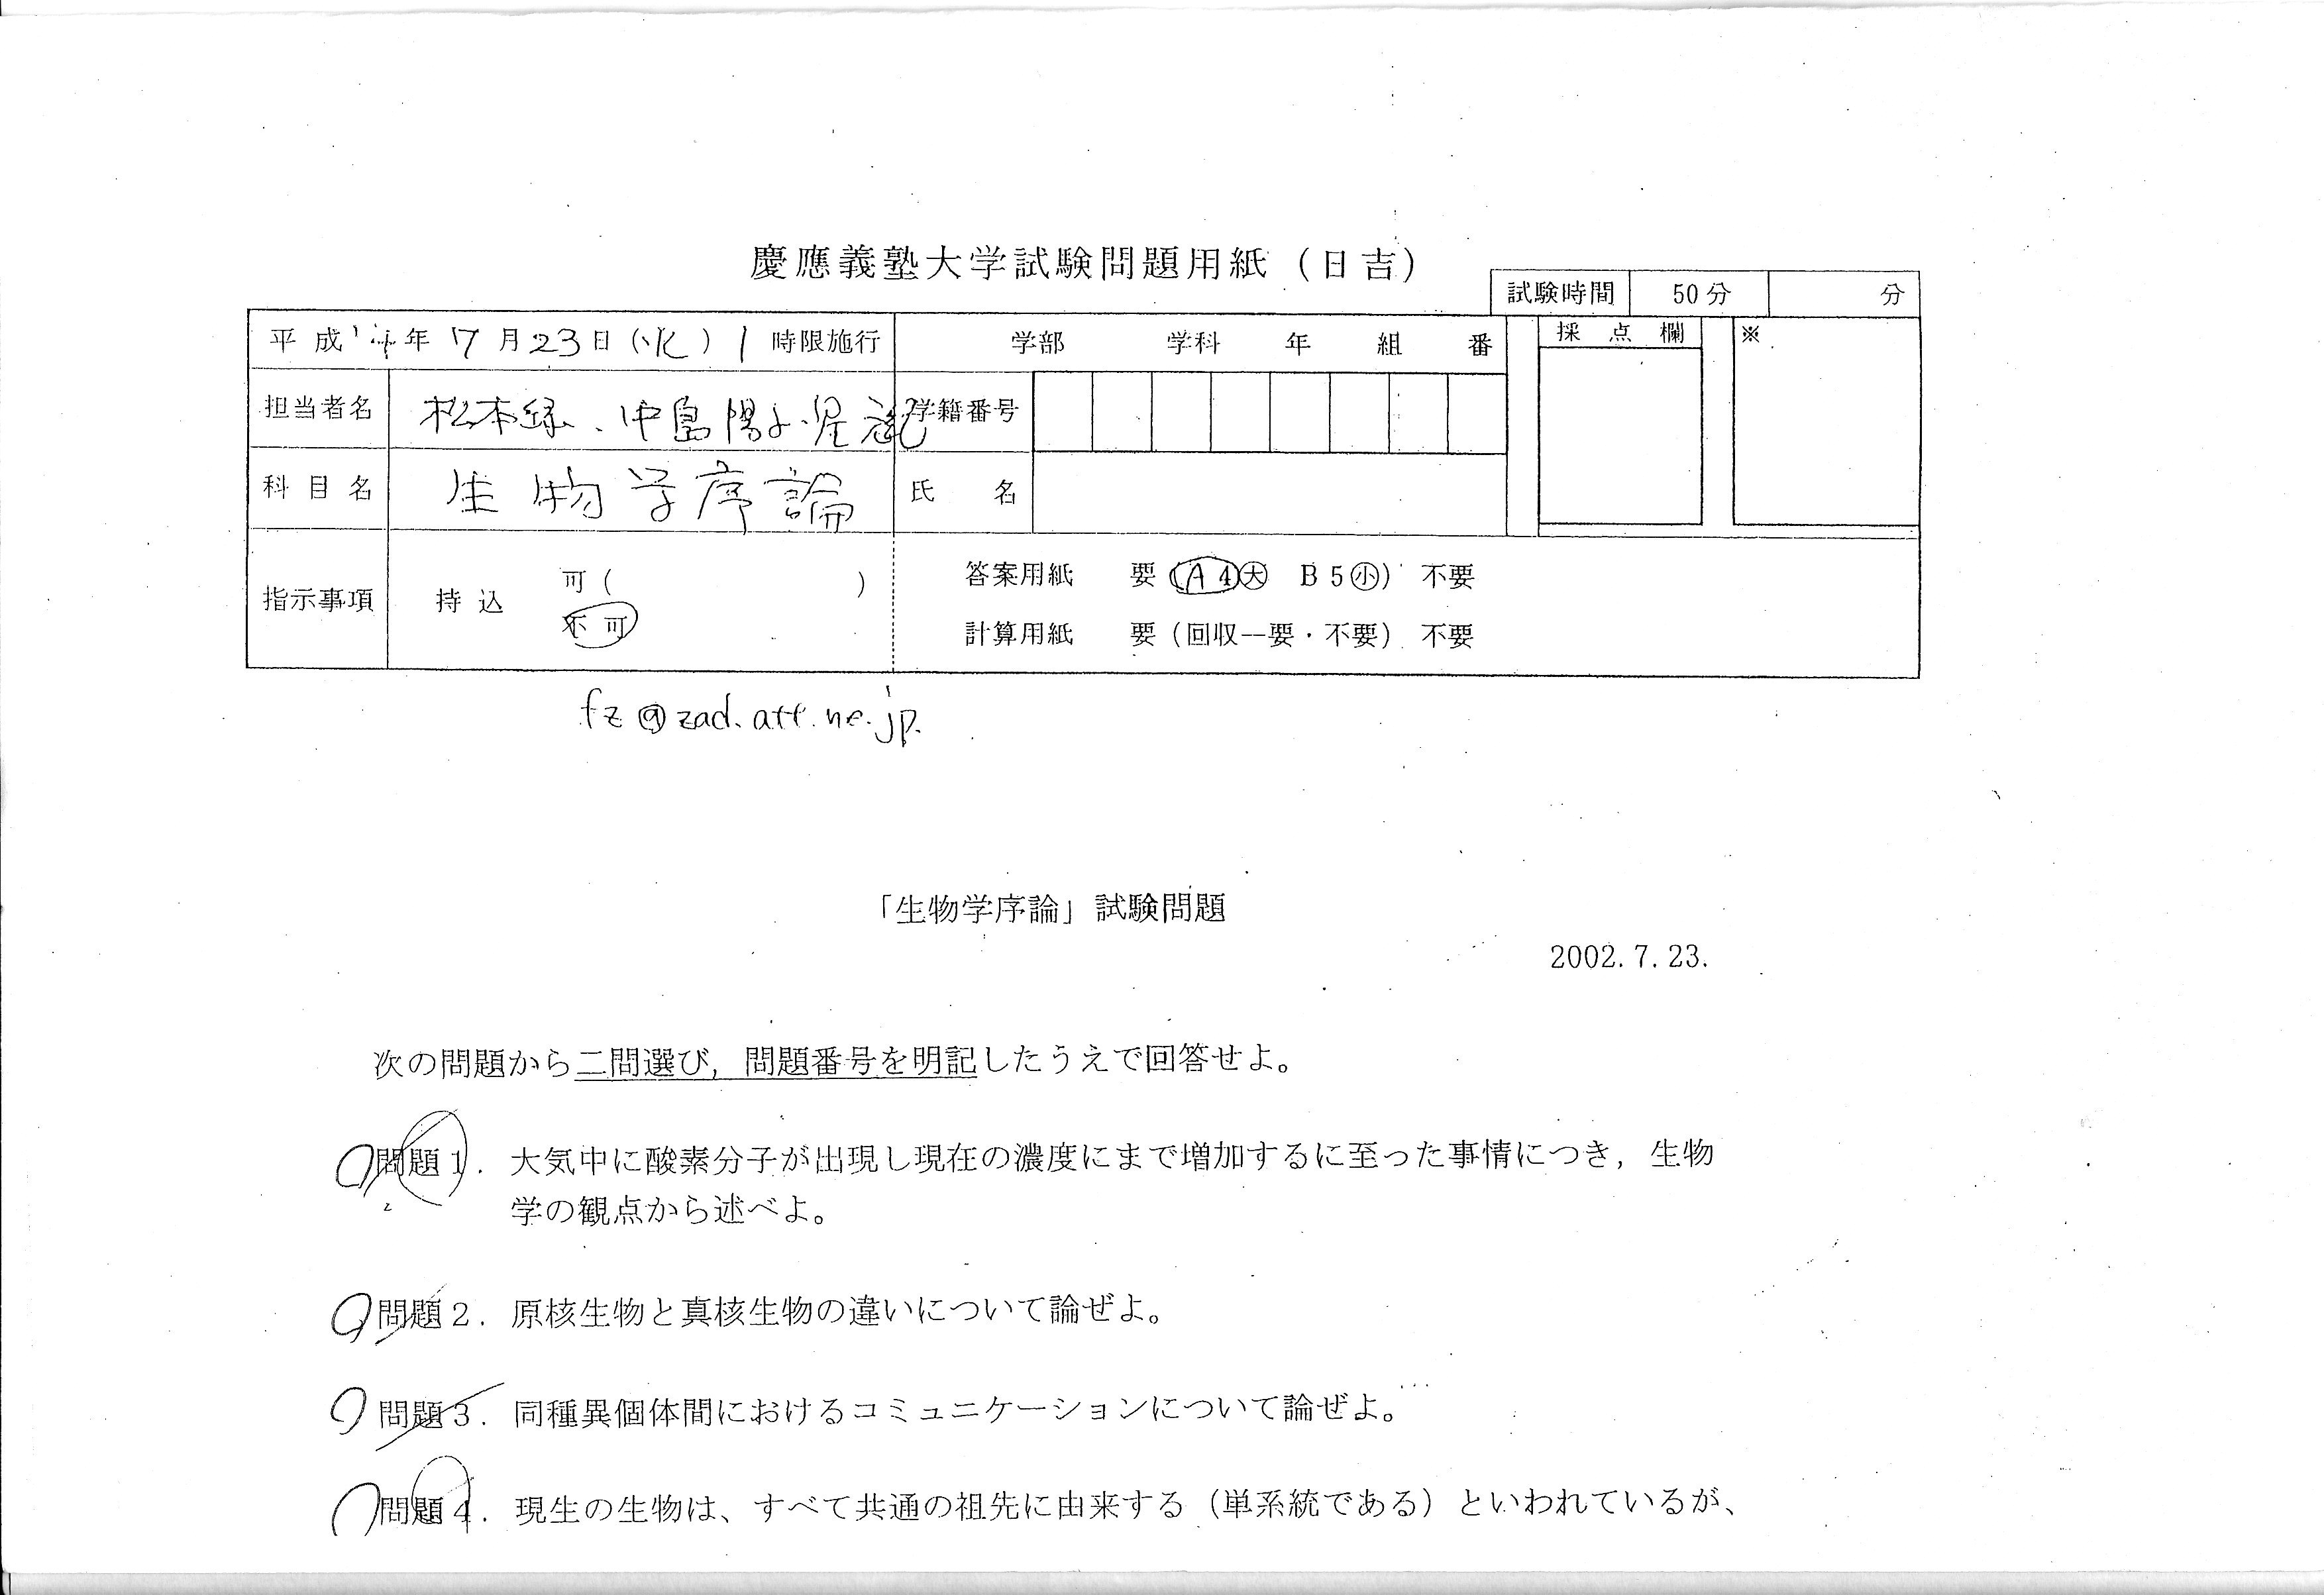 慶應義塾大学試験問題用紙（日吉）
試験時間 50分 分
平成14年7月23日（火）1時限施行 学部 学科 年 組 番 採点欄 ※
担当者名 松本緑、中島陽子、星 学籍番号
科目名 生物学序論 氏名
指示事項 持込 可（ ） 不可
答案用紙 要（A4㊛ B5㊙） 不要
計算用紙 要（回収―要・不要） 不要
fz@zad.att.ne.jp.
「生物学序論」試験問題
2002.7.23.
次の問題から二問選び，問題番号を明記したうえで回答せよ。
問題1．大気中に酸素分子が出現し現在の濃度にまで増加するに至った事情につき，生物
学の観点から述べよ。
問題2．原核生物と真核生物の違いについて論ぜよ。
問題3．同種異個体間におけるコミュニケーションについて論ぜよ。
問題4．現生の生物は、すべて共通の祖先に由来する（単系統である）といわれているが、